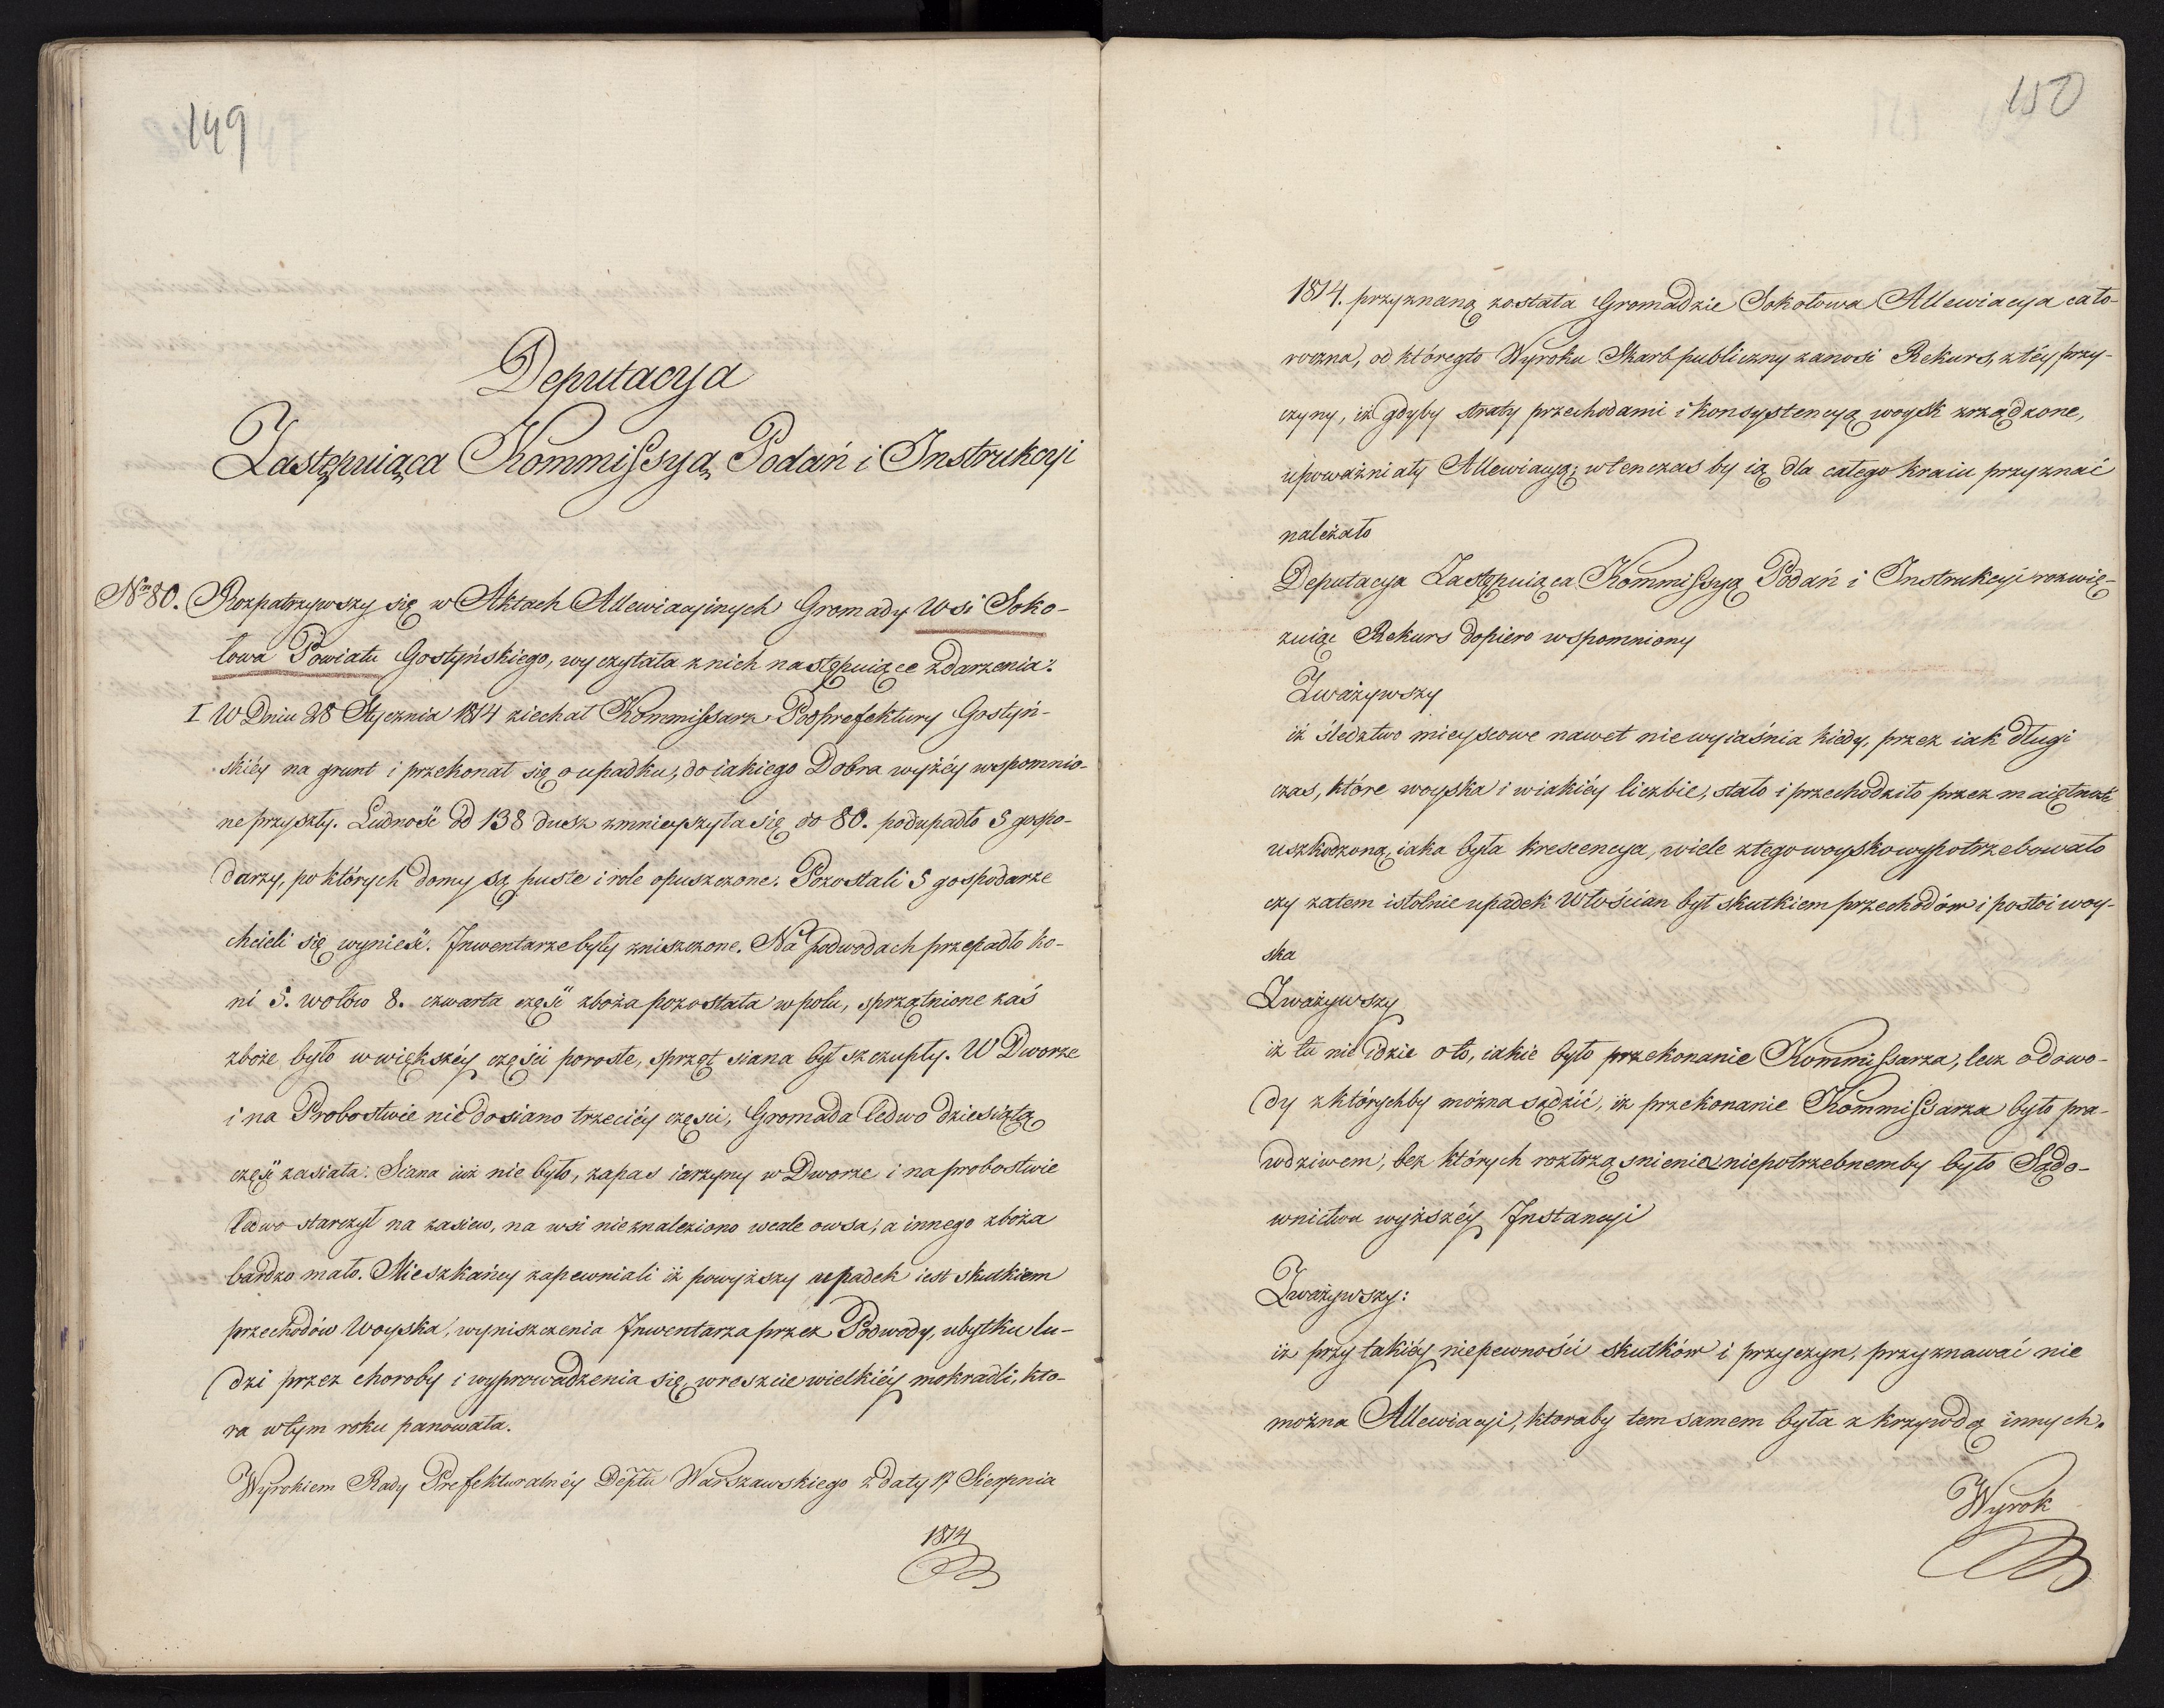 149
Deputacya
Zastępuiąca Kommissyą Podań i Instrukcyi
Nro 80. Rozpatrzywszy się w Aktach Allewiacyinych Gromady Wsi Soko-
łowa Powiatu Gostyńskiego, wyczytała z nich następuiące zdarzenia:
I W Dniu 28 Stycznia 1814 ziechał Kommissarz Podprefektury Gostyń-
skiéy na grunt i przekonał się o upadku, do iakiego Dobra wyżéy wspomnio-
ne przyszły. Ludność od 138 dusz zmnieyszyła się do 80. podupadło 5 gospo-
darzy, po których domy są puste i role opuszczone. Pozostali 5 gospodarze
chcieli się wynieść. Inwentarze były zniszczone. Na podwodach przepadło ko-
ni 5. wołów 8. czwarta część zboża pozostała w polu, sprzątnione zaś
zboże było w większéy części porosłe, sprzęt siana był szczupły. W Dworze
i na Probostwie nie dosiano trzeciéy części, Gromada ledwo dziesiątą
część zasiała. Siana iuż nie było, zapas iarzyny w Dworze i na probostwie
ledwo starczył na zasiew, na wsi nie znaleziono wcale owsa, a innego zboża
bardzo mało. Mieszkańcy zapewniali iż powyższy upadek iest skutkiem
przechodów Woyska, wyniszczenia Inwentarza przez Podwody, ubytku lu-
dzi przez choroby i wyprowadzenia się, wreszcie wielkiéy mokradli, kto-
ra w tym roku panowała.
Wyrokiem Rady Prefekturalnéy Deptu Warszawskiego z daty 17 Sierpnia
1814
150
1814. przyznaną została Gromadzie Sokołowa Allewiacya cało-
roczna, od któregto Wyroku Skarb publiczny zanosi Rekurs, z téy przy-
czyny, iż gdyby straty przechodami i konsystencyą woysk zrządzone,
upoważniały Allewiacyą; wtenczas by ią dla całego kraiu przyznać
należało
Deputacya Zastępuiąca Kommissyą Podań i Instrukcyi rozwię-
zuiąc Rekurs dopiero wspomniony
Zważywszy
iż śledztwo mieyscowe nawet nie wyiaśnia kiedy, przez iak długi
czas, które woyska i w iakiéy liczbie, stało i przechodziło przez maiętność
uszkodzoną, iaka była krescencya, wiele z tego woysko wypotrzebowało
czy zatem istotnie upadek Włościan był skutkiem przechodów i postoi woy-
ska
Zważywszy
iż tu nie idzie o to, iakie było przekonanie Kommissarza, lecz o dowo-
dy z którychby można sądzić, iż przekonanie Kommissarza było pra-
wdziwem, bez których roztrząśnienie niepotrzebnemby było Sądo-
wnictwu wyższéy Instancyi
Zważywszy:
iż przy takiéy niepewności skutków i przyczyn, przyznawać nie
można Allewiacyi, ktoraby tem samem była z krzywdą innych.
Wyrok